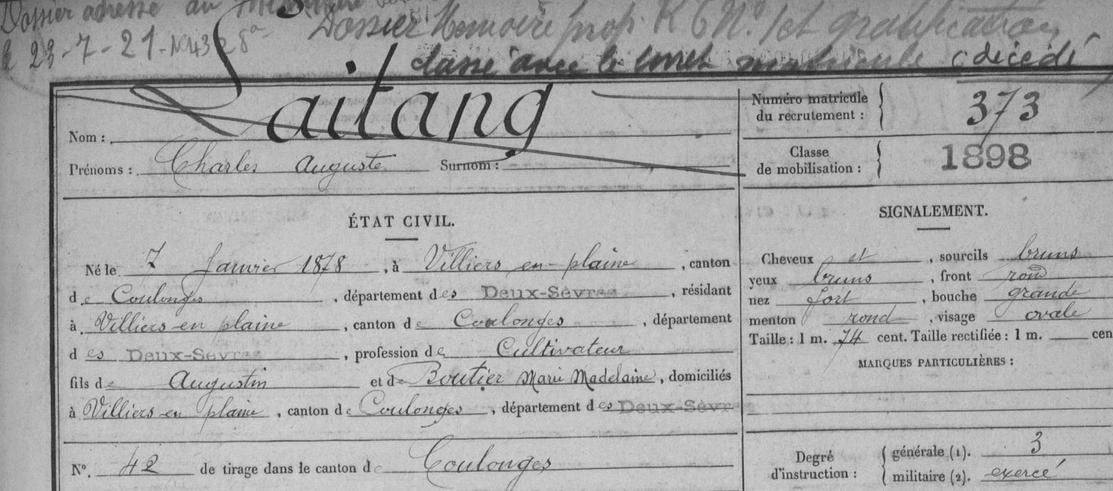 Dossier adresse au
Dossier Memoire prop. R et gratification
le 23-7-21-N°4328
classé avec le matricule (décédé)
Laitang
Nom :
Prénoms : Charles Auguste Surnom :
Numéro matricule du recrutement : 373
Classe de mobilisation : 1898
ÉTAT CIVIL.
Né le 7 Janvier 1878, à Villiers en plaine, canton
de Coulonges, département des Deux-Sèvres, résidant
à Villiers en plaine, canton de Coulonges, département
des Deux-Sèvres, profession de Cultivateur
fils de Augustin et de Boutier Marie Madelaine, domiciliés
à Villiers en plaine, canton de Coulonges, département des Deux-Sèvres
N° 42 de tirage dans le canton de Coulonges
SIGNALEMENT.
Cheveux et, sourcils bruns
yeux bruns, front rond
nez fort, bouche grande
menton rond, visage ovale
Taille : 1 m. 74 cent. Taille rectifiée : 1 m. cen
MARQUES PARTICULIÈRES :
Degré d'instruction :
générale (1). 3
militaire (2). exercé